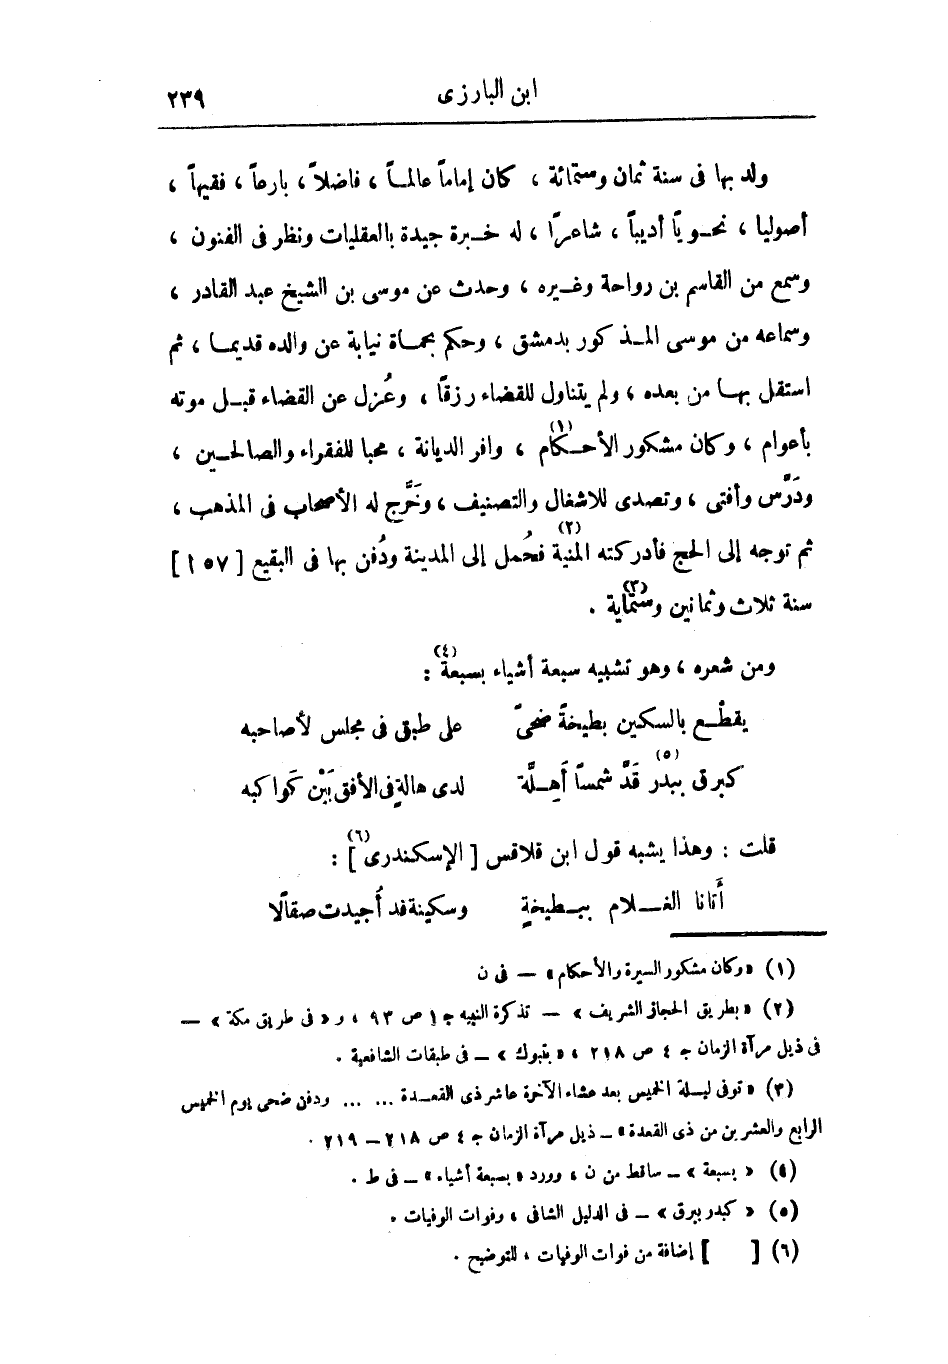 ابن البارزى ٢٣٩
ولد بها فى سنة ثمان وستمائة ، كان إماماً عالمـاً ، فاضلاً ، بارعاً ، فقيهاً ،
أصوليا ، نحـويًا أديباً ، شاعرًا ، له خـبرة جيدة بالعقليات ونظر فى الفنون ،
وسمع من القاسم بن رواحة وغـيره ، وحدث عن موسى بن الشيخ عبد القادر ،
وسماعه من موسى المـذكور بدمشق ، وحكم بحمـاة نيابة عن والده قديمـا ، ثم
استقل بهـا من بعده ، ولم يتناول للقضاء رزقًا ، وعُزل عن القضاء قبـل موته
بأعوام ، وكان مشكور الأحـكام (١) ، وافر الديانة ، محبا للفقراء والصالحـين ،
ودَرَّس وأفتى ، وتصدى للاشغال والتصنيف ، وخَرَّج له الأصحاب فى المذهب ،
ثم توجه إلى الحج فأدركته المنية (٢) فحُمل إلى المدينة ودُفن بها فى البقيع [ ١٥٧ ]
سنة ثلاث وثمانين وستماية (٣) .
ومن شعره ، وهو تشبيه سبعة أشياء بسبعة (٤) :
يقطْـع بالسكين بطيخةً ضحىً على طبق فى مجلس لأصاحبه
كبرق ببدر (٥) قَدَّ شمساً أَهِـلَّة لدى هالةٍ فى الأفق بَيْن كَواكبه
قلت : وهذا يشبه قول ابن قلاقس [ الإسكندرى (٦) ] :
أَتانا الغـــلام ببـطيخةٍ وسكينة قد أُجيدت صقالًا
(١) « وكان مشكور السيرة والأحكام » — فى ن
(٢) « بطريق الحجاز الشريف » — تذكرة النبيه ج ١ ص ٩٣ ، و « فى طريق مكة » —
فى ذيل مرآة الزمان ج ٤ ص ٢١٨ ، « بتبوك » — فى طبقات الشافعية .
(٣) « توفى ليـلة الخميس بعد عشاء الآخرة عاشر ذى القعـدة ... ... ودفن ضحى يوم الخميس
الرابع والعشرين من ذى القعدة » — ذيل مرآة الزمان ج ٤ ص ٢١٨ — ٢١٩ .
(٤) « بسبعة » — ساقط من ن ، وورد « بسبعة أشياء » — فى ط .
(٥) « كبدر ببرق » — فى الدليل الشافى ، وفوات الوفيات .
(٦) [ ] إضافة من فوات الوفيات ، للتوضيح .